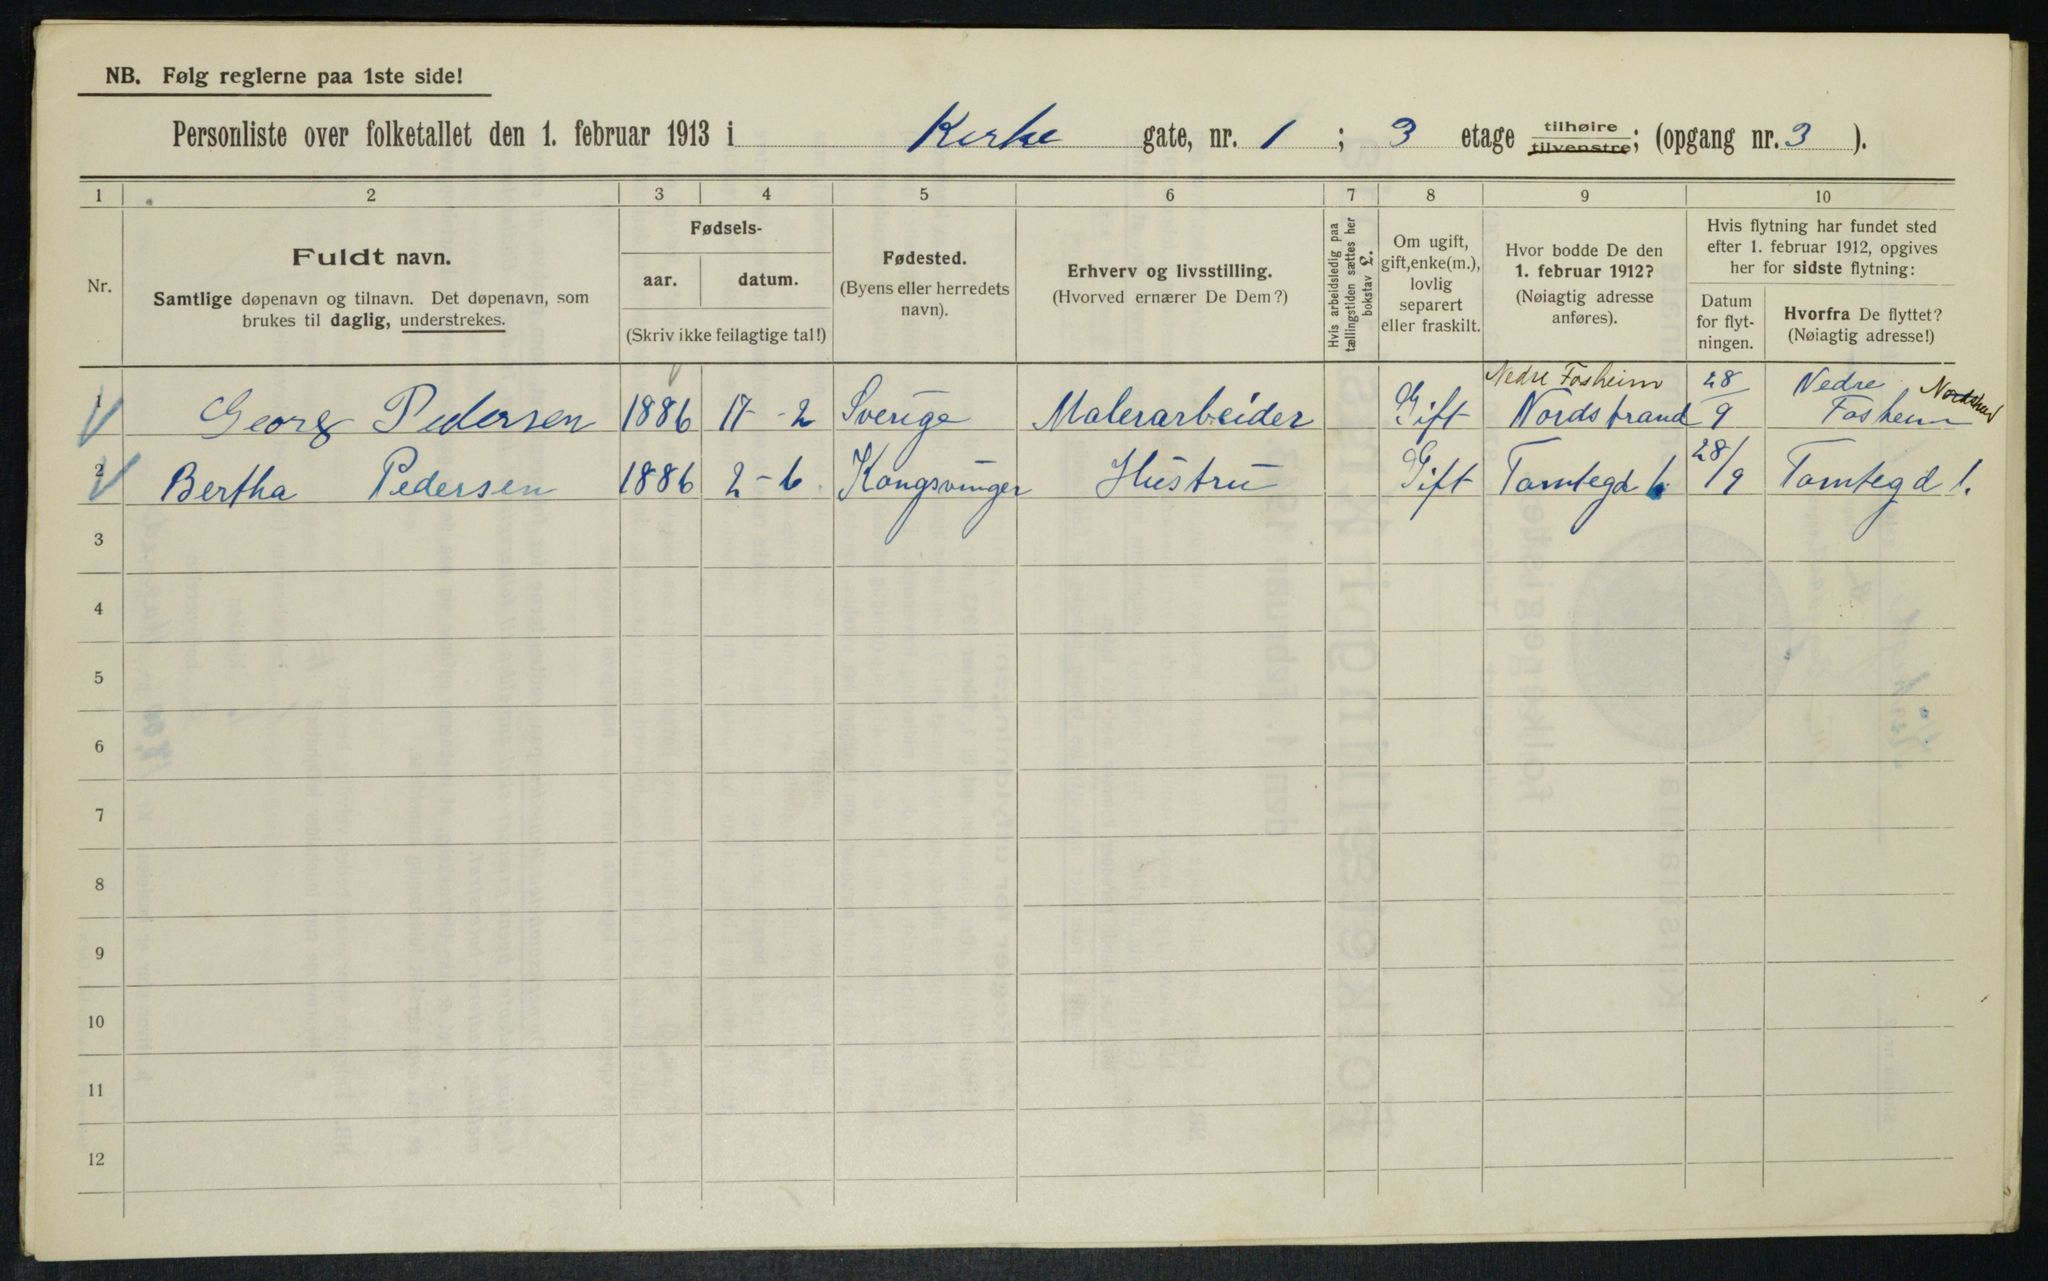 NB. Følg reglerne paa 1ste side!
Personliste over folketallet den 1. februar 1913 i Kirke gate, nr. 1 ; 3 etage tilhøire tilvenstre; (opgang nr. 3 ).
1 2 3 4 5 6 7 8 9 10
Nr.
Fuldt navn.
Samtlige døpenavn og tilnavn. Det døpenavn, som
brukes til daglig, understrekes.
Fødsels-
aar. datum.
(Skriv ikke feilagtige tal!)
Fødested.
(Byens eller herredets
navn).
Erhverv og livsstilling.
(Hvorved ernærer De Dem?)
Hvis arbeidsledig paa
tællingstiden sættes her
bokstav L.
Om ugift,
gift, enke(m.),
lovlig
separert
eller fraskilt.
Hvor bodde De den
1. februar 1912?
(Nøiagtig adresse
anføres).
Hvis flytning har fundet sted
efter 1. februar 1912, opgives
her for sidste flytning:
Datum
for flyt-
ningen.
Hvorfra De flyttet?
(Nøiagtig adresse!)
1 Georg Pedersen 1886 17 - 2 Sverige Malerarbeider Gift Nedre Fosheim Nordstrand 28/9 Nedre Fosheim
2 Bertha Pedersen 1886 2 - 6 Kongsvinger Hustru Gift Tomtegd 1. 28/9 Tomtegd 1.
3
4
5
6
7
8
9
10
11
12